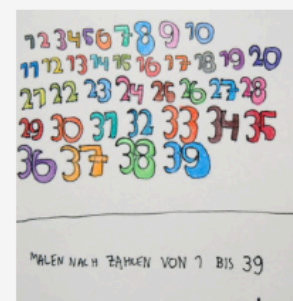 1 2 3 4 5 6 7 8 9 10
11 12 13 14 15 16 17 18 19 20
21 22 23 24 25 26 27 28
29 30 31 32 33 34 35
36 37 38 39
MALEN NACH ZAHLEN VON 1 BIS 39